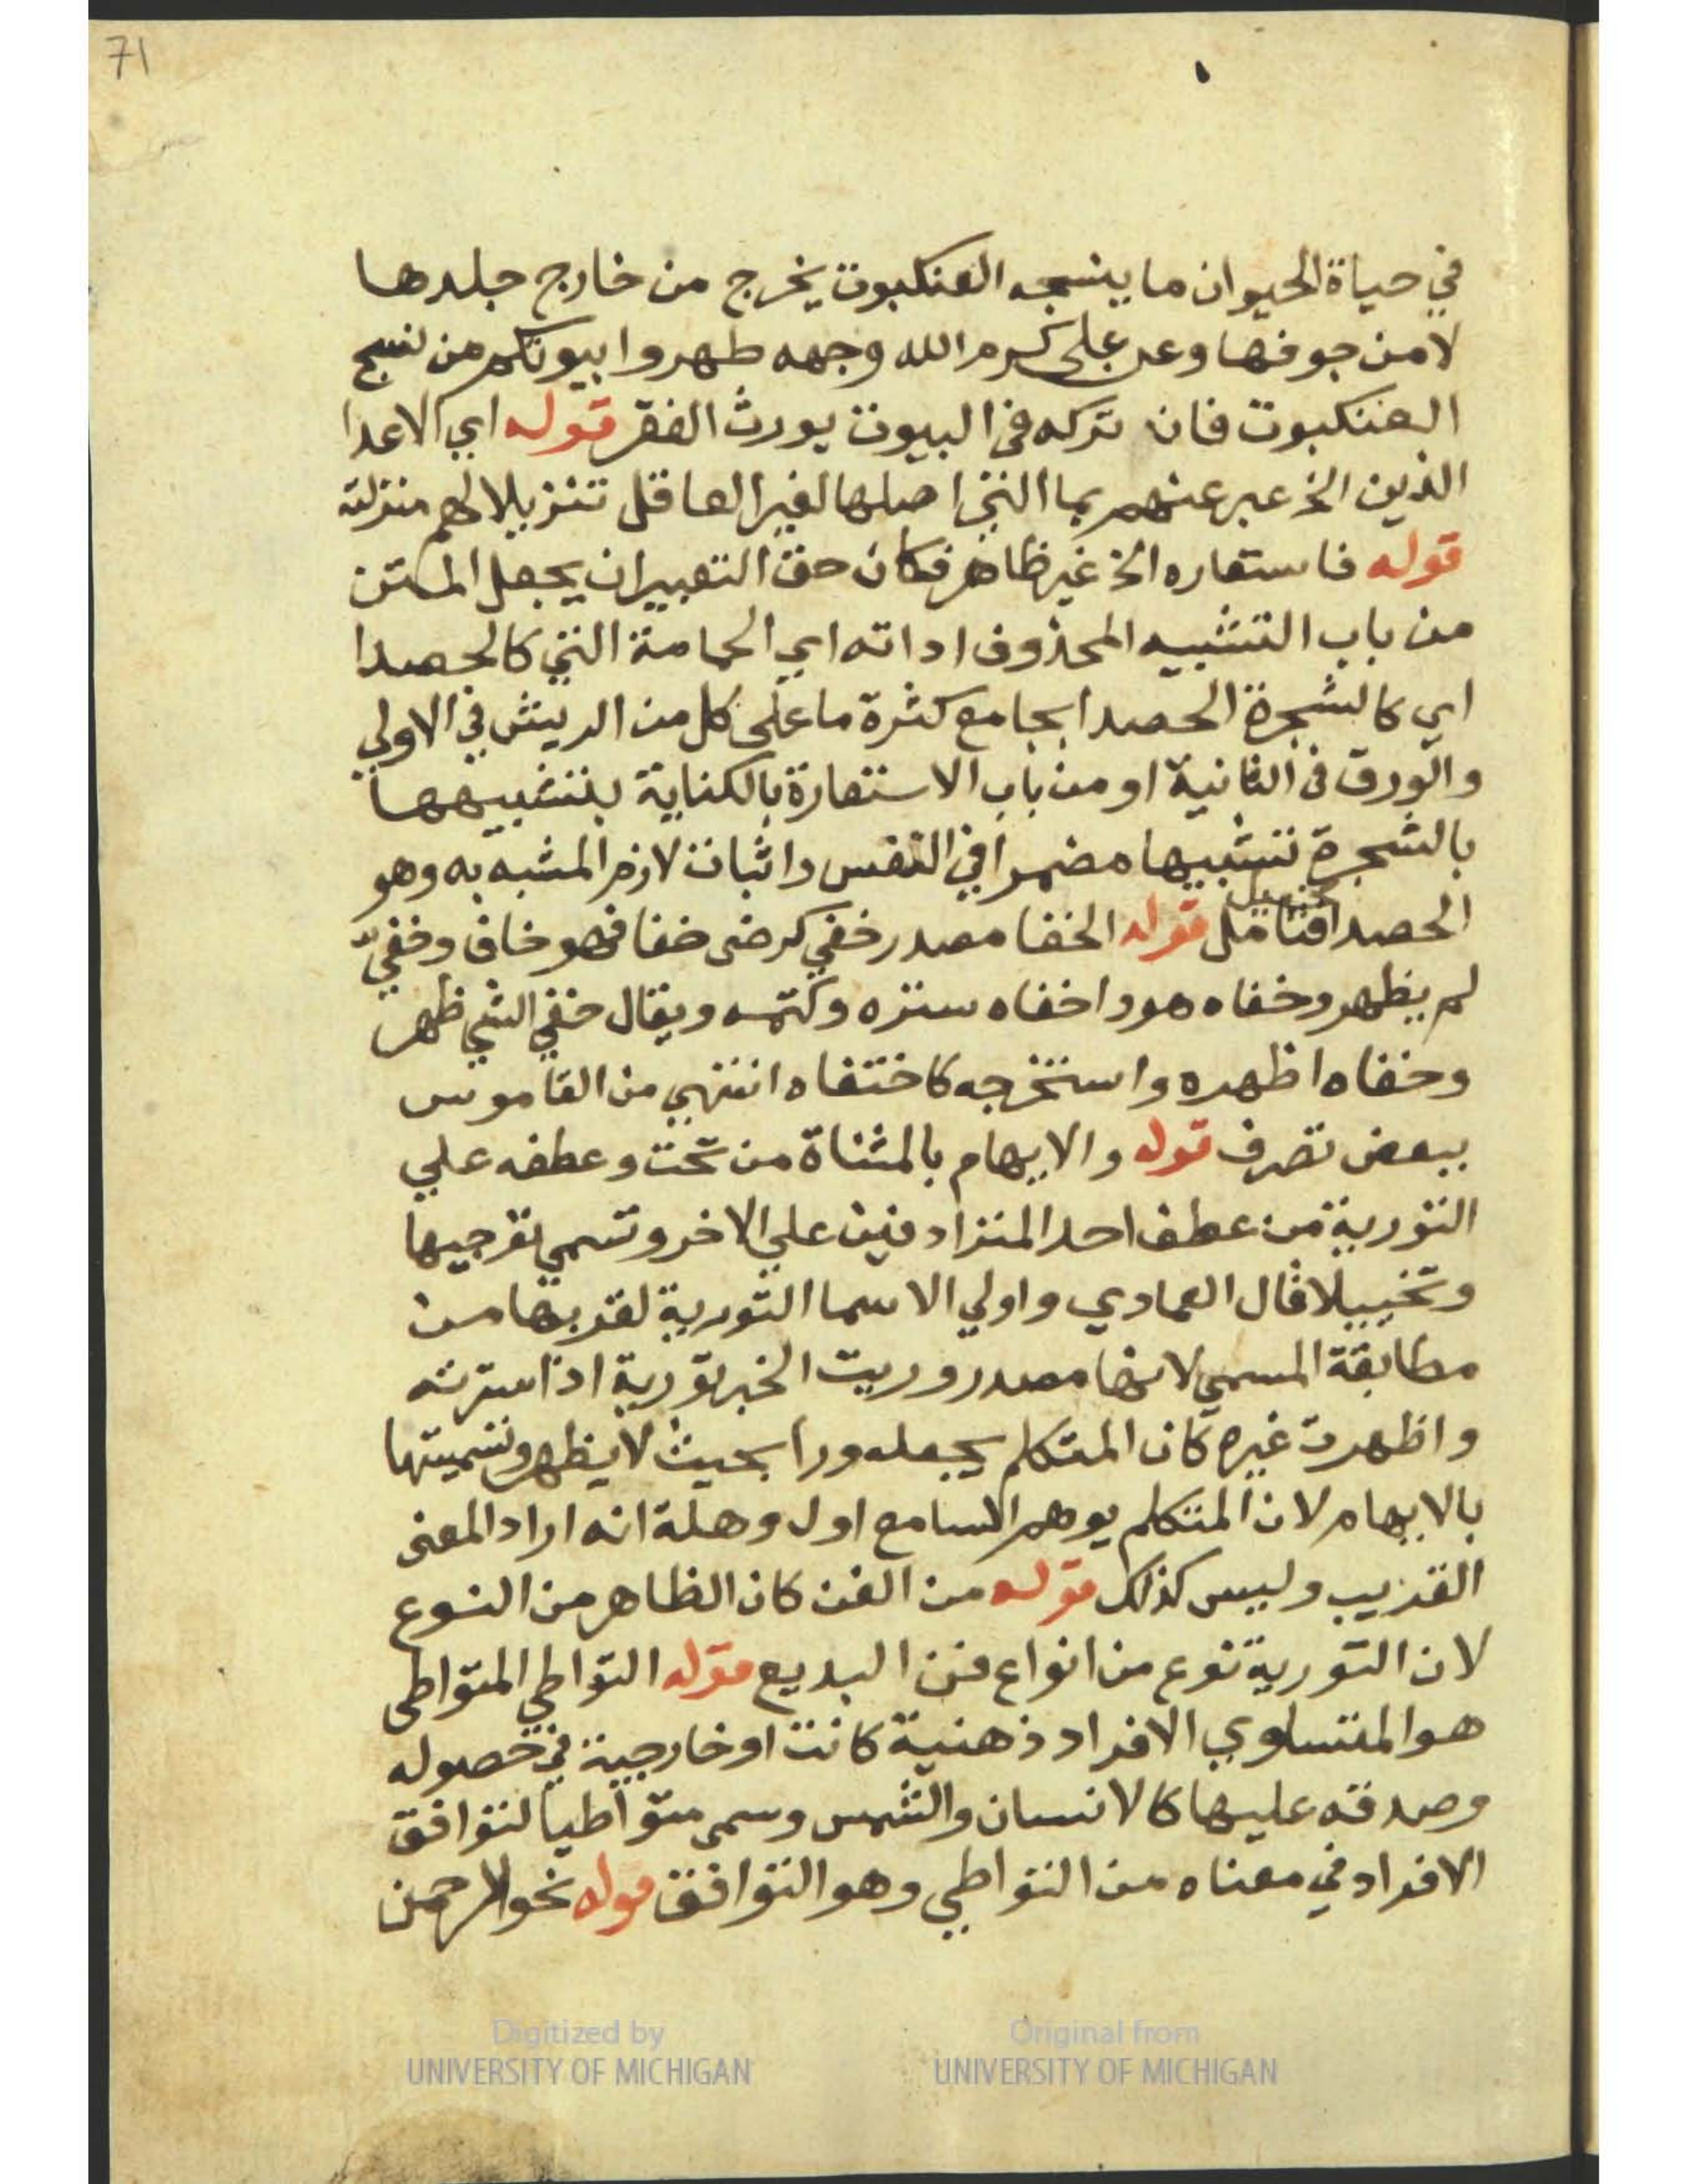 71
في حياة الحيوان ما ينسجه العنكبوت يخرج من خارج جلدها
لا من جوفها وعن على كرم الله وجهه طهروا بيوتكم من نسج
العنكبوت فان تركه في البيوت يورث الفقر قوله اي الاعدا
الذين الخ عبر عنهم بما التي اصلها لغير العاقل تنزيلا لهم منزلته
قوله فاستعاره الخ غير ظاهر فكان حق التعبير ان يجعل المتن
من باب التشبيه المحذوف اداته اي الحمامة التي كالحصدا
اي كالشجرة الحصدا بجامع كثرة ما على كل من الريش في الاولي
والورق في الثانية او من باب الاستعارة بالكناية بتشبيهها
بالشجرة تشبيها مضمرا في النفس واثبات لازم المشبه به وهو
الحصدا تخييل فتامل قوله الخفا مصدر خفي كرضى خفا فهو خاف وخفيّ
لم يظهر وخفاه هو واخفاه ستره وكتمه ويقال خفي الشي ظهر
وخفاه اظهره واستخرجه كاختفاه انتهي من القاموس
ببعض تصرف قوله والايهام بالمثناة من تحت وعطفه علي
التورية من عطف احد المترادفين علي الاخر وتسمي توجيها
وتخييلا قال العمادي واولي الاسما التورية لقربها من
مطابقة المسمي لانها مصدر وريت الخبر تورية اذا سترته
واظهرت غيره كان المتكلم يجعله ورا بحيث لا يظهر وتسميتها
بالايهام لان المتكلم يوهم السامع اول وهلة انه اراد المعنى
القريب وليس كذلك قوله من الفن كان الظاهر من النوع
لان التورية نوع من انواع فن البديع قوله التواطي المتواطى
هو المتساوي الافراد ذهنية كانت او خارجية في حصوله
وصدقه عليها كالانسان والشمس وسمى متواطيا لتوافق
الافراد في معناه من التواطي وهو التوافق قوله نحو الرحمن
Digitized by
UNIVERSITY OF MICHIGAN
Original from
UNIVERSITY OF MICHIGAN